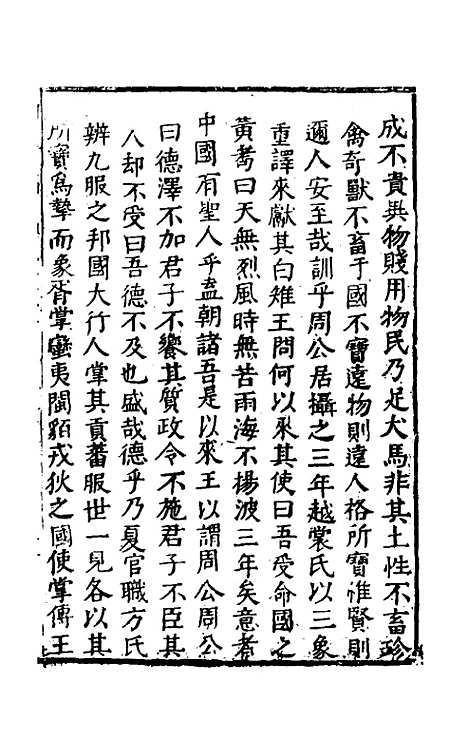 成不貴異物賤用物民乃足犬馬非其土性不畜珍
禽奇獸不畜于國不寶遠物則遠人格所寶惟賢則
邇人安至哉訓乎周公居攝之三年越裳氏以三象
重譯來獻其白雉王問何以來其使曰吾受命國之
黃耇曰天無烈風時無苦雨海不揚波三年矣意者
中國有聖人乎盍朝諸吾是以來王以謂周公周公
曰德澤不加君子不饗其質政令不施君子不臣其
人却不受曰吾德不及也盛哉德乎乃夏官職方氏
辨九服之邦國大行人掌其貢蕃服世一見各以其
所寶爲摯而象胥掌蠻夷閩貉戎狄之國使掌傳王